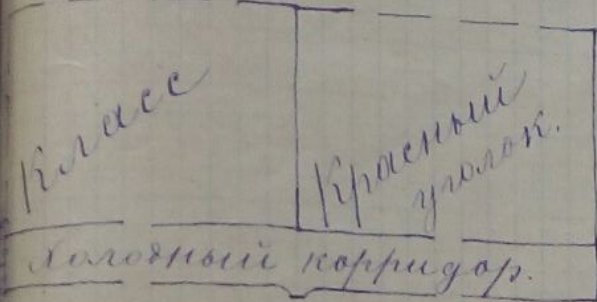 Класс
Красный
уголок.
Холодный корридор.